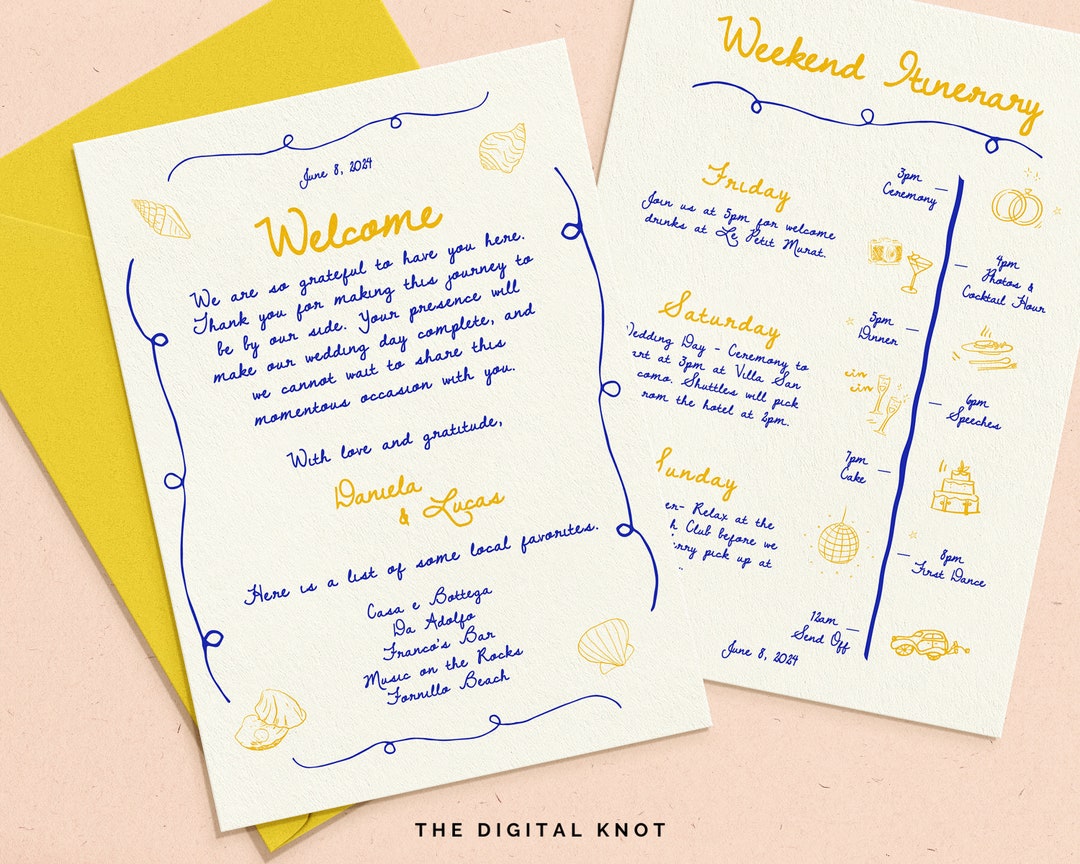 June 8, 2024
Welcome
We are so grateful to have you here.
Thank you for making this journey to
be by our side. Your presence will
make our wedding day complete, and
we cannot wait to share this
momentous occasion with you.
With love and gratitude,
Daniela
& Lucas
Here is a list of some local favorites.
Casa e Bottega
Da Adolfo
Franco's Bar
Music on the Rocks
Fornillo Beach
Weekend Itinerary
Friday
Join us at 5pm for welcome
drinks at Le Petit Murat.
Saturday
Wedding Day - Ceremony to
art at 3pm at Villa San
como. Shuttles will pick
rom the hotel at 2pm.
Sunday
er- Relax at the
h Club before we
rry pick up at
3pm
Ceremony
4pm
Photos &
Cocktail Hour
5pm
Dinner
cin
cin
6pm
Speeches
7pm
Cake
8pm
First Dance
12am
Send Off
June 8, 2024
THE DIGITAL KNOT